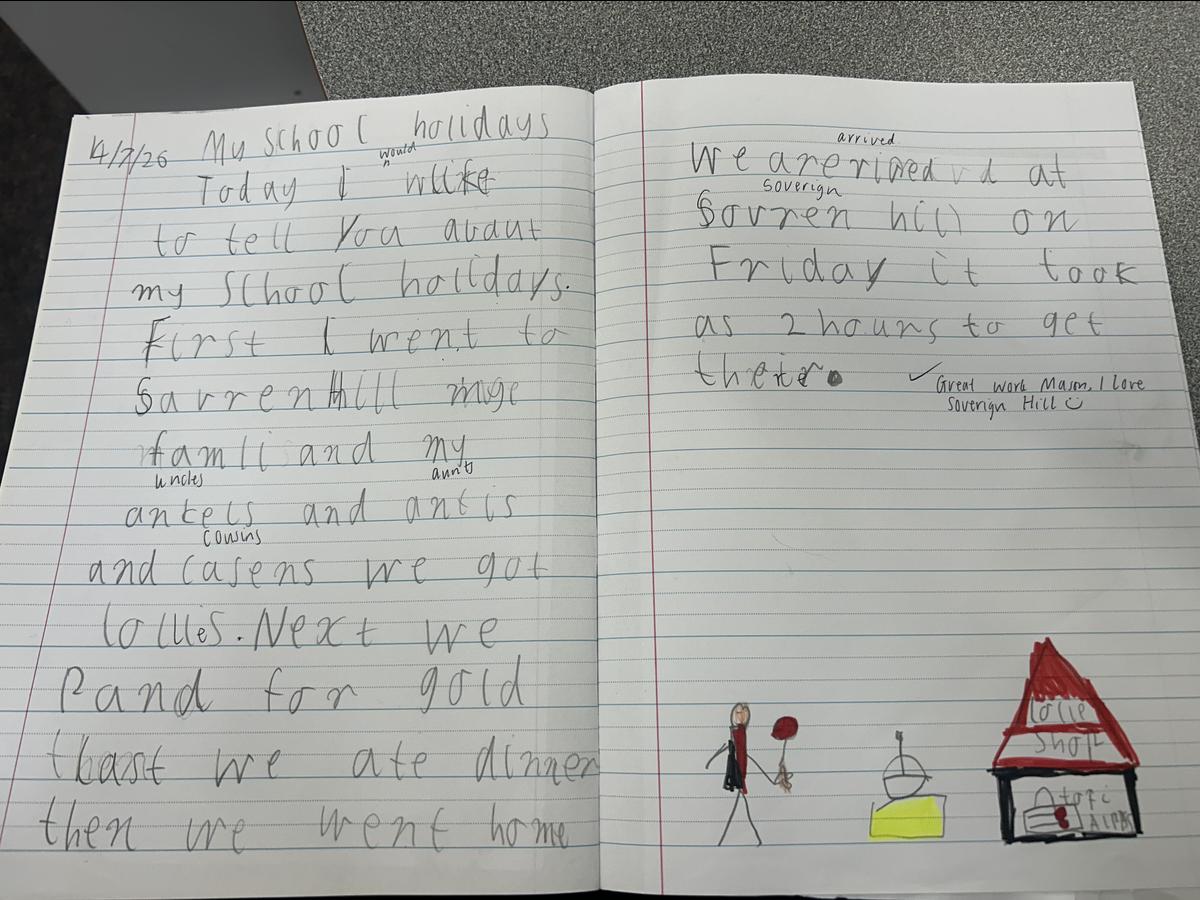 14/7/26 My school holidays
would
Today I wlike
to tell you abaut
my school holidays.
First I went to
Sarren Hill
famli and my
uncles aunts
antels and antis
cousins
and casens we got
lollies. Next we
Pand for gold
we ate dinner
then we went home
arrived
We at
Soverign
Sovren hill on
Friday it took
as 2 hours to get
Great work Mason, I love
Soverign Hill
lolie
shop
tofi